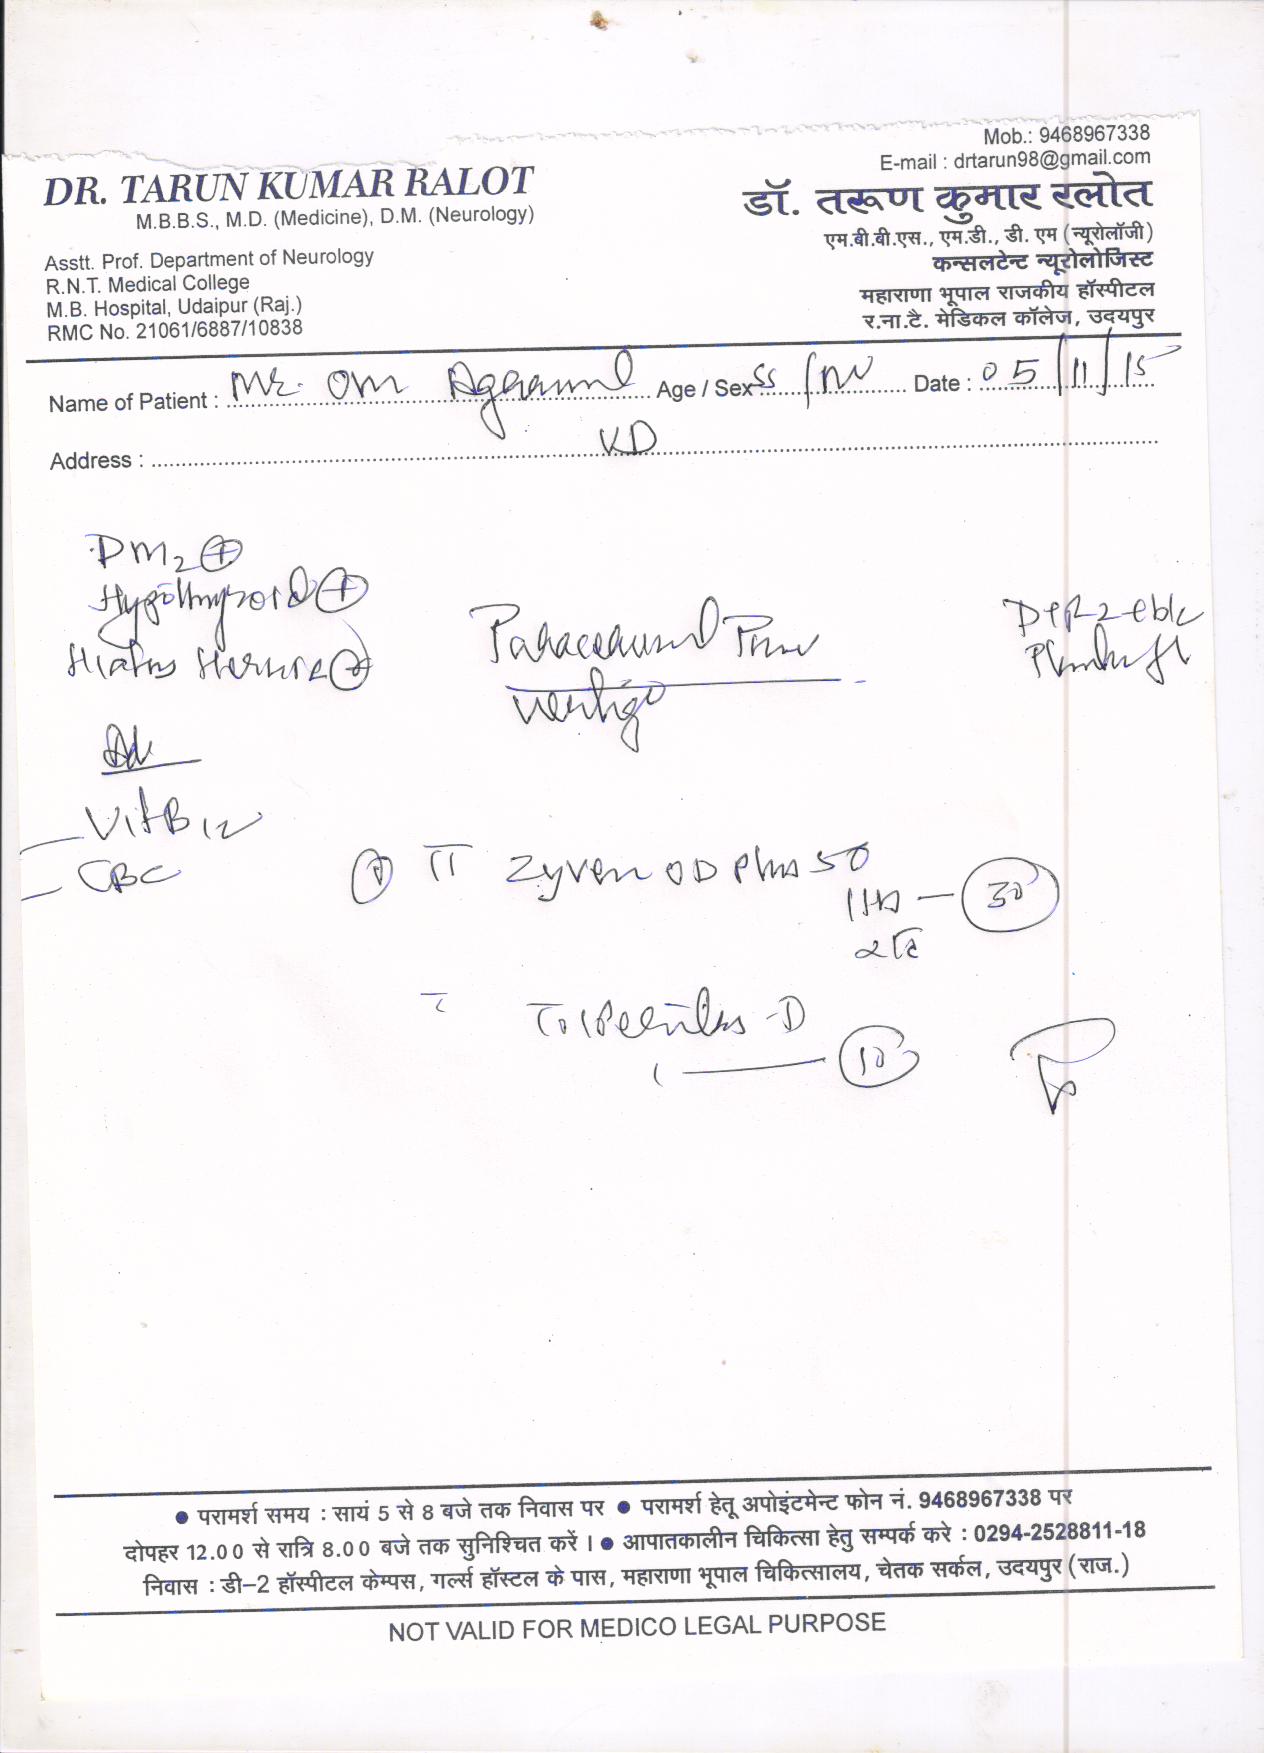 Mob.: 9468967338
E-mail : drtarun98@gmail.com
DR. TARUN KUMAR RALOT
M.B.B.S., M.D. (Medicine), D.M. (Neurology)
Asstt. Prof. Department of Neurology
R.N.T. Medical College
M.B. Hospital, Udaipur (Raj.)
RMC No. 21061/6887/10838
डॉ. तरूण कुमार रलोत
एम.बी.बी.एस., एम.डी., डी. एम (न्यूरोलॉजी)
कन्सलटेन्ट न्यूरोलोजिस्ट
महाराणा भूपाल राजकीय हॉस्पीटल
र.ना.टै. मेडिकल कॉलेज, उदयपुर
Name of Patient : Mr. Om Agrawal Age / Sex Date : 05/11/15
Address : KD
DM2 +
Hypothyroid +
Hiatus Hernia +
vertigo
Adv
Vit B12
CBC
Zyven OD Plus 50
30
-D
10
● परामर्श समय : सायं 5 से 8 बजे तक निवास पर ● परामर्श हेतू अपोइंटमेन्ट फोन नं. 9468967338 पर
दोपहर 12.00 से रात्रि 8.00 बजे तक सुनिश्चित करें । ● आपातकालीन चिकित्सा हेतु सम्पर्क करे : 0294-2528811-18
निवास : डी–2 हॉस्पीटल केम्पस, गर्ल्स हॉस्टल के पास, महाराणा भूपाल चिकित्सालय, चेतक सर्कल, उदयपुर (राज.)
NOT VALID FOR MEDICO LEGAL PURPOSE